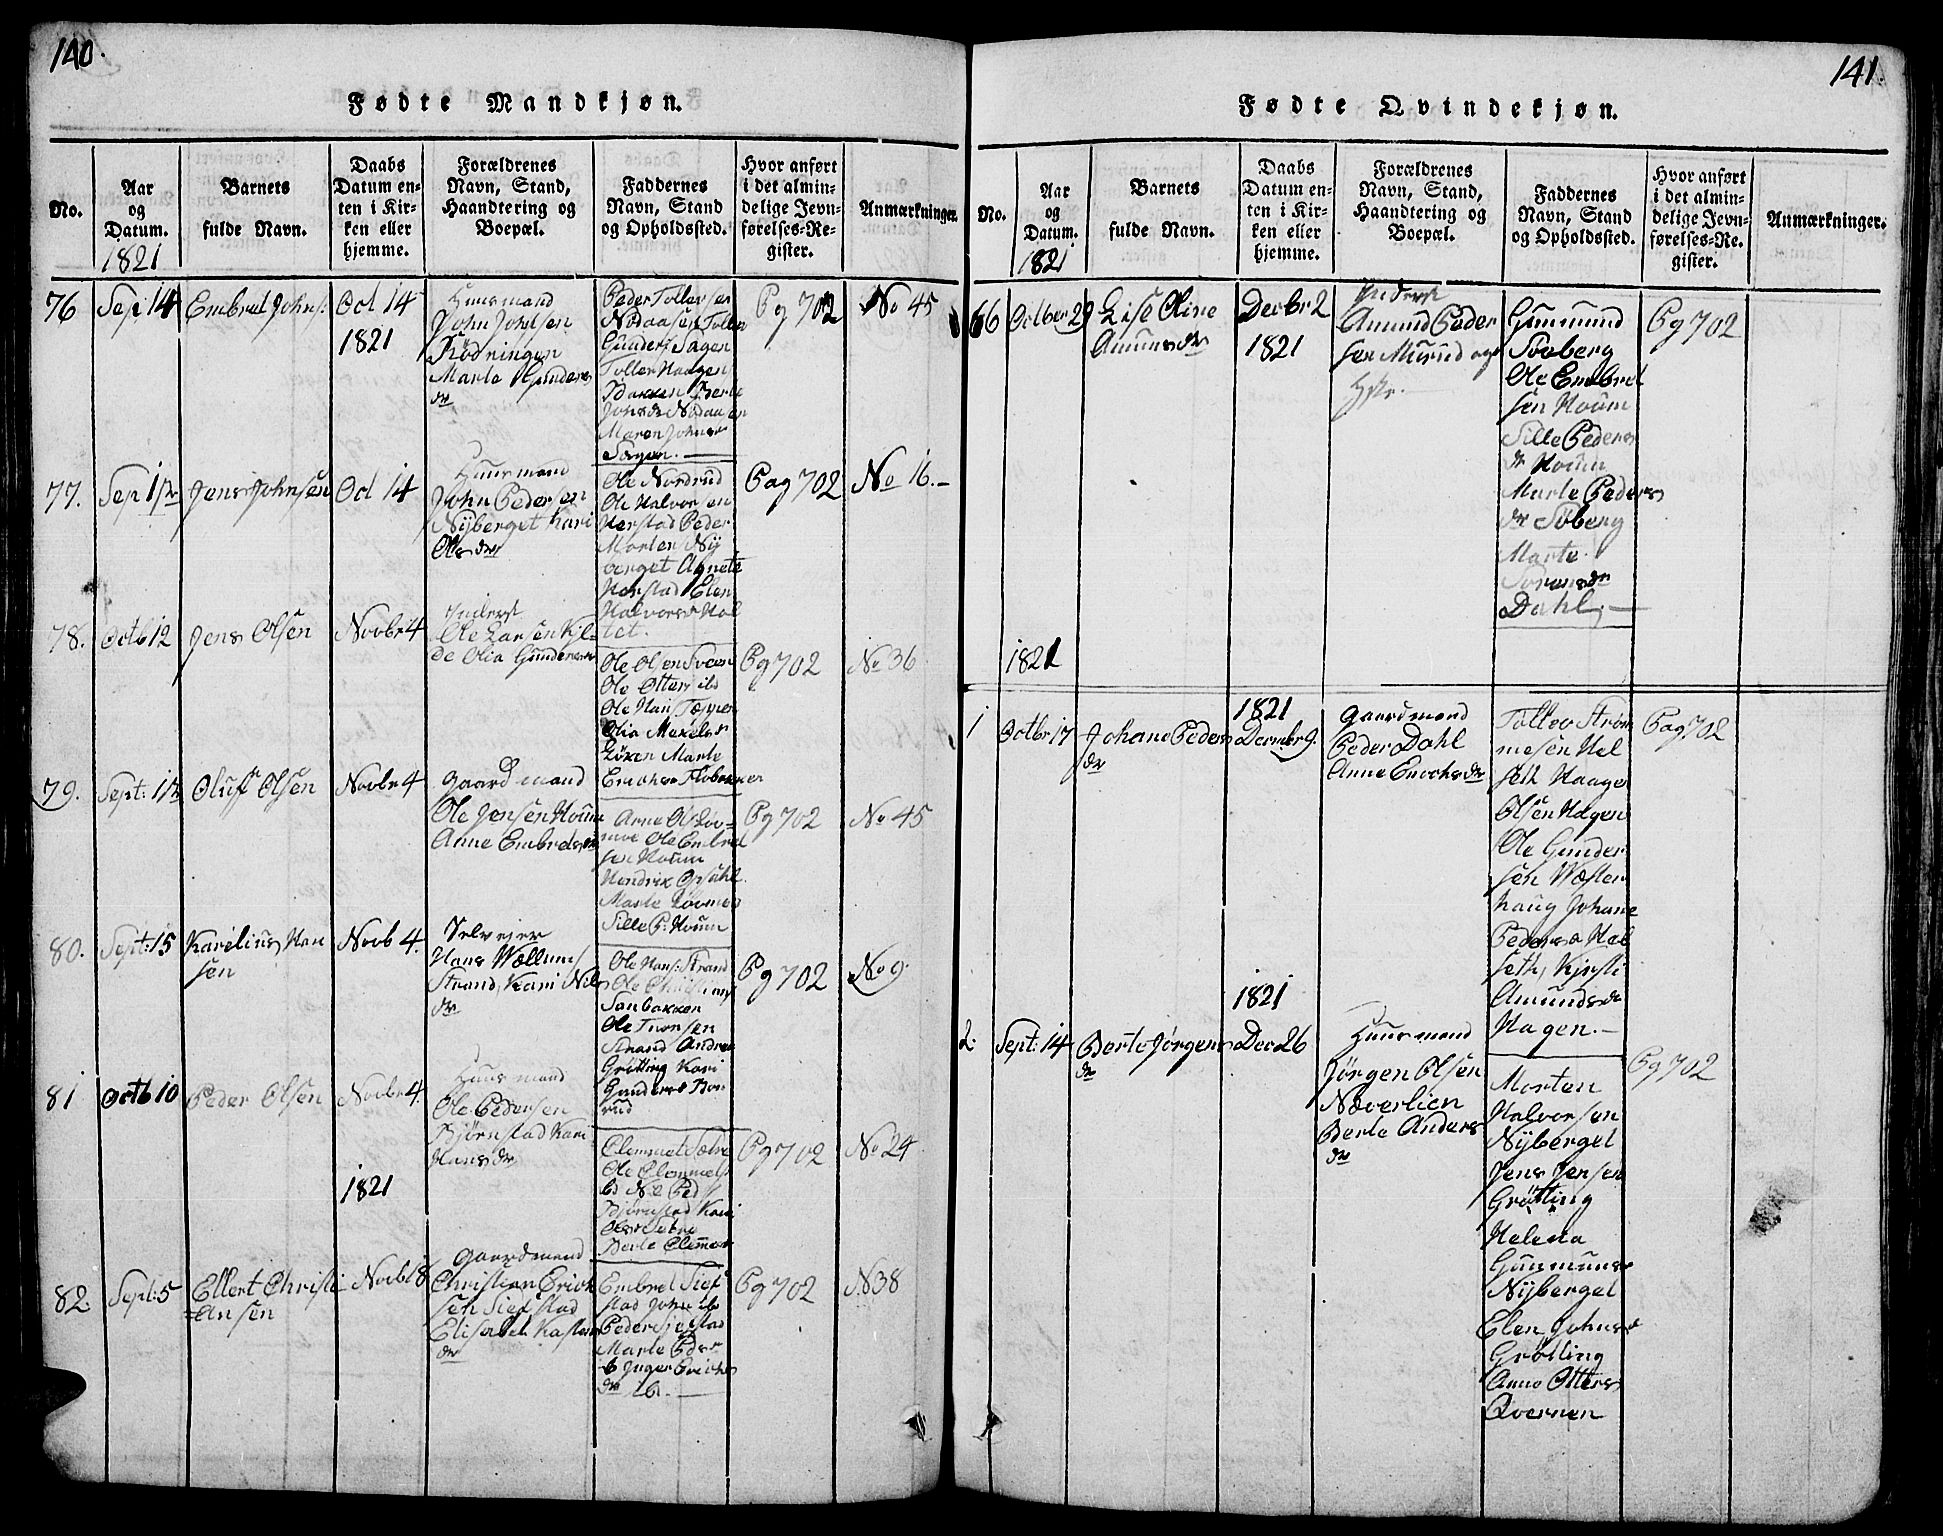 140.
Fødte Mandkjøn.
No.
Aar
og
Datum.
1821
Barnets
fulde Navn.
Daabs
Datum en-
ten i Kir-
ken eller
hjemme.
Forældrenes
Navn, Stand,
Haandtering og
Boepæl.
Faddernes
Navn, Stand
og Opholdssted.
Hvor anført
i det almin-
delige Jevn-
førelses-Re-
gister.
Anmærkninger.
76
Sep 14
Embret Johns:
Oct 14
1821
Huusmand
John Johnsen
Rödningen
Marte Gunders
dr
Peder Tollefsen
Gunders Sagen
Bakken Berte
Maren Johns
Sagen.
Pg 702
No 45
77.
Sep
Jens Johnsen
Oct 14
Huusmand
John Pedersen
Nÿberget Kari
Ols dr
Ole Nordrud
Ole Halvorsen
Harstad Peder
Morten Nÿ
berget Agnete
Harstad Elen
Halvors Hol
tet.
Pag 702
No 16.
78.
Octb 12
Jens Olsen
Novbr 4
Inderst
Ole Larsen Kjl-
de Olia Gunders
Ole Olsen Sveen
Ole Otters ibd
Ole Hans Tæppen
Löken Marte
Pg 702
No 36
79.
Sept:
Oluf Olsen
Novbr 4
Gaardmand
Ole Jensen Houm
Anne Embrets
Arne Ols Lov-
moe Ole Embret
sen Houm
Hendrik Opsahl
Marte Lovmoe
Sille P: Houm
Pg 702
No 45
80.
Sept: 15
Karelius Han
sen
Novb 4.
Selveier
Hans Wællums
Strand, Kari Nils
dr
Ole Hans: Strand
Ole Christians
Sanbakken
Ole Thorsen
Strand Andrea
Grötting Kari
Gunders Bor
rud
Pg 702
No 9.
81
Octb 10
Peder Olsen
Novbr 4.
1821
Huusmand
Ole Pedersen
Bjørnstad Kari
Hans dr
Clemmet Sætre
Ole Clemmets
Bjørnstad Kari
Ols Sætre
Berte Clemmet
Pg 702
No 24
82.
Sept: 5
Ellert Christi-
=ansen
Novb 18
Gaardmand
Christian Erick
sen Siefstad
Elisabet Kasten
dr
Embret Sief
stad John ib
Peder Siefstad
Marte Peds
b Inger Erichs
dr ib.
Pg 702
N 38
141.
Fødte Qvindekjøn.
No.
Aar
og
Datum.
1821
Barnets
fulde Navn.
Daabs
Datum en-
ten i Kir-
ken eller
hjemme.
Forældrenes
Navn, Stand,
Haandtering og
Boepæl.
Faddernes
Navn, Stand
og Opholdssted.
Hvor anført
i det almin-
delige Jevn-
førelses-Re.
gister.
Anmærkninger.
66
Octber 29
Lise Oline
Amunds dr
Decbr 2
1821
Inderst
Amund Peder
sen Murud og
Hstr.
Gunmund
Soeberg
Ole Embret
sen Houm
Sille Peders
dr Houm
Marte Peders
dr Söberg
Marte
Sörens dr
Dahl.
Pg 702
1821
1
Octbr 17
Johane Peders
dr
1821
Decmbr 9.
Gaardmand
Peder Dahl
Anne Enochs dr
Tollev Ström
mesen Hel
seth Haagen
Olsen Hagen
Ole Gunder
sen Wæster
haug Johane
Peders Hel
seth, Kjersti
Amunds dr
Hagen.
Pag 702
2.
Sept: 14
Berte Jørgens
dr
1821
Dec 26
Huusmand
Jörgen Olsen
Næverlien
Berte Anders
dr
Morten
Halvorsen
Nÿberget
Jens Jensen
Grötting
Helena
Gunmuns
Nÿberget
Elen Johns
Grötting
Anne Otters
Qvernen
Pg 702